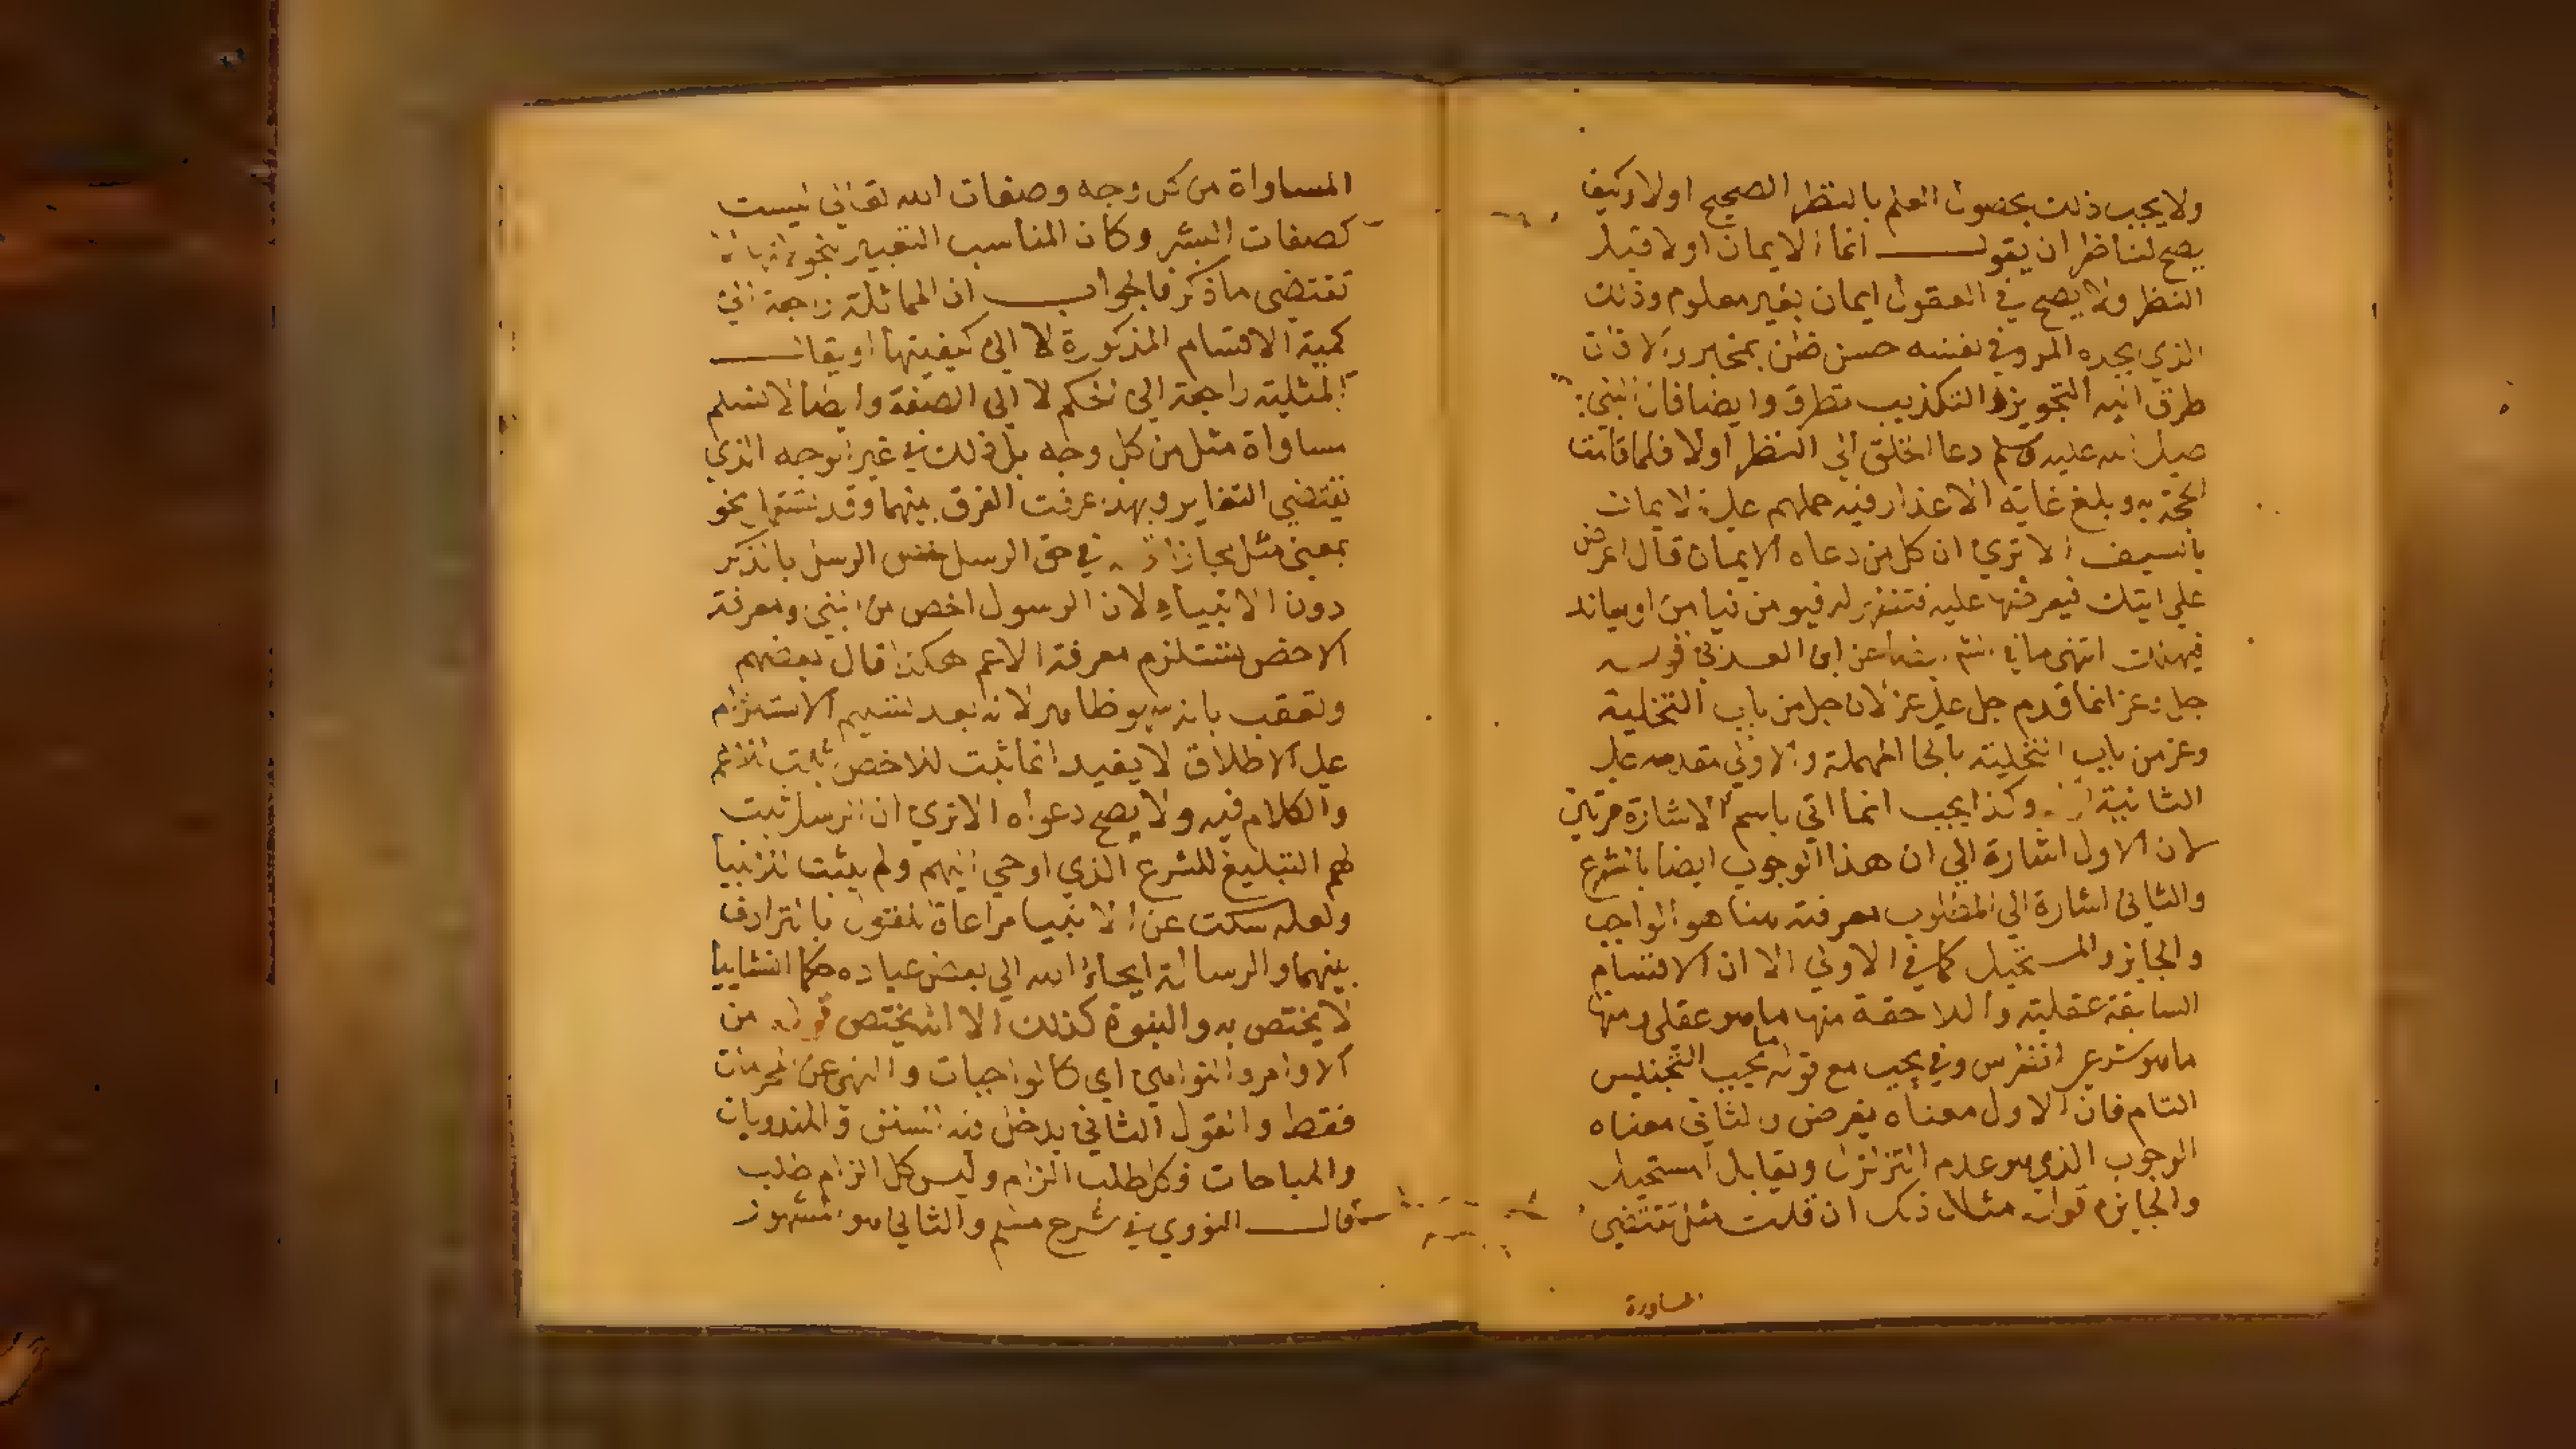 ولا يجب ذلك بحصول العلم بالنظر الصحيح اولا وكيف
يصح لناظر ان يقول انما الايمان اولا قبل
النظر ولا يصح في العقول ايمان بغير معلوم وذلك
الذي يجده المرء في نفسه حسن ظن بمخبره والا فان
طرق اليه التجويز او التكذيب تطرق وايضا فان النبي
صلى الله عليه وسلم دعا الخلق الي النظر اولا فلما قامت
الحجة به وبلغ غاية الاعذار فيه حملهم على الايمان
بالسيف الا تري ان كل من دعاه الايمان قال اعرض
علي ايتك فيعرضها عليه فتظهر له فيومن فيامن او يعاند
فيهلك انتهى ما في عن ابن العربي قوله
جل وعز انما قدم جل على عز لان جل من باب التخلية
وعز من باب التحلية بالحا المهملة والاولي مقدمه على
الثانية وكذا يجب انما اتي باسم الاشارة مرتين
لان الاول اشارة الي ان هذا الوجوب ايضا بالشرع
والثاني اشارة الي المطلوب معرفته هنا هو الواجب
والجايز والمستحيل كما في الاولي الا ان الاقسام
السابقة عقلية واللاحقة منها ما هو عقلي ومنها
ما هو شرعي وفي يجب مع قوله ما يجب التجنيس
التام فان الاول معناه يفرض والثاني معناه
الوجوب الذي هو عدم التزلزل ويقابل المستحيل
والجايز قوله مثل ذلك ان قلت مثل تقتضي
المساواة
المساواة من كل وجه وصفات الله تعالي ليست
كصفات البشر وكان المناسب التعبير بنحو لانها لا
تقتضي ما ذكر فالجواب ان المماثلة راجعة الي
كمية الاقسام المذكورة لا الي كيفيتها او يقال
المثلية راجعة الي الحكم لا الي الصفة وايضا لا نسلم
مساواة مثل من كل وجه بل ذلك في غير الوجه الذي
يقتضي التغاير وبهذا عرفت الفرق بينهما وقد نحو
بمعني مثل مجازا في حق الرسل خص الرسل بالذكر
دون الانبياء لان الرسول اخص من النبي ومعرفة
الاخص تستلزم معرفة الاعم هكذا قال بعضهم
وتعقب بانه ظاهر لانه بعد تسليم الاستلزام
على الاطلاق لا يفيد انما ثبت للاخص ثبت للاعم
والكلام فيه ولا يصح دعواه الا تري ان الرسل ثبت
لهم التبليغ للشرع الذي اوحي اليهم ولم يثبت للانبيا
ولعله سكت عن الانبيا مراعاة للقول بالترادف
بينهما والرسالة ايحاء الله الي بعض عباده حكما انشاييا
لا يختص به والنبوة كذلك الا انه يختص قوله من
الاوامر والنواهي اي كالواجبات والنهي عن المحرمات
فقط والقول الثاني يدخل فيه السنن والمندوبات
والمباحات فكل طلب الزام وليس كل الزام طلب
قال النووي في شرح مسلم والثاني هو المشهور